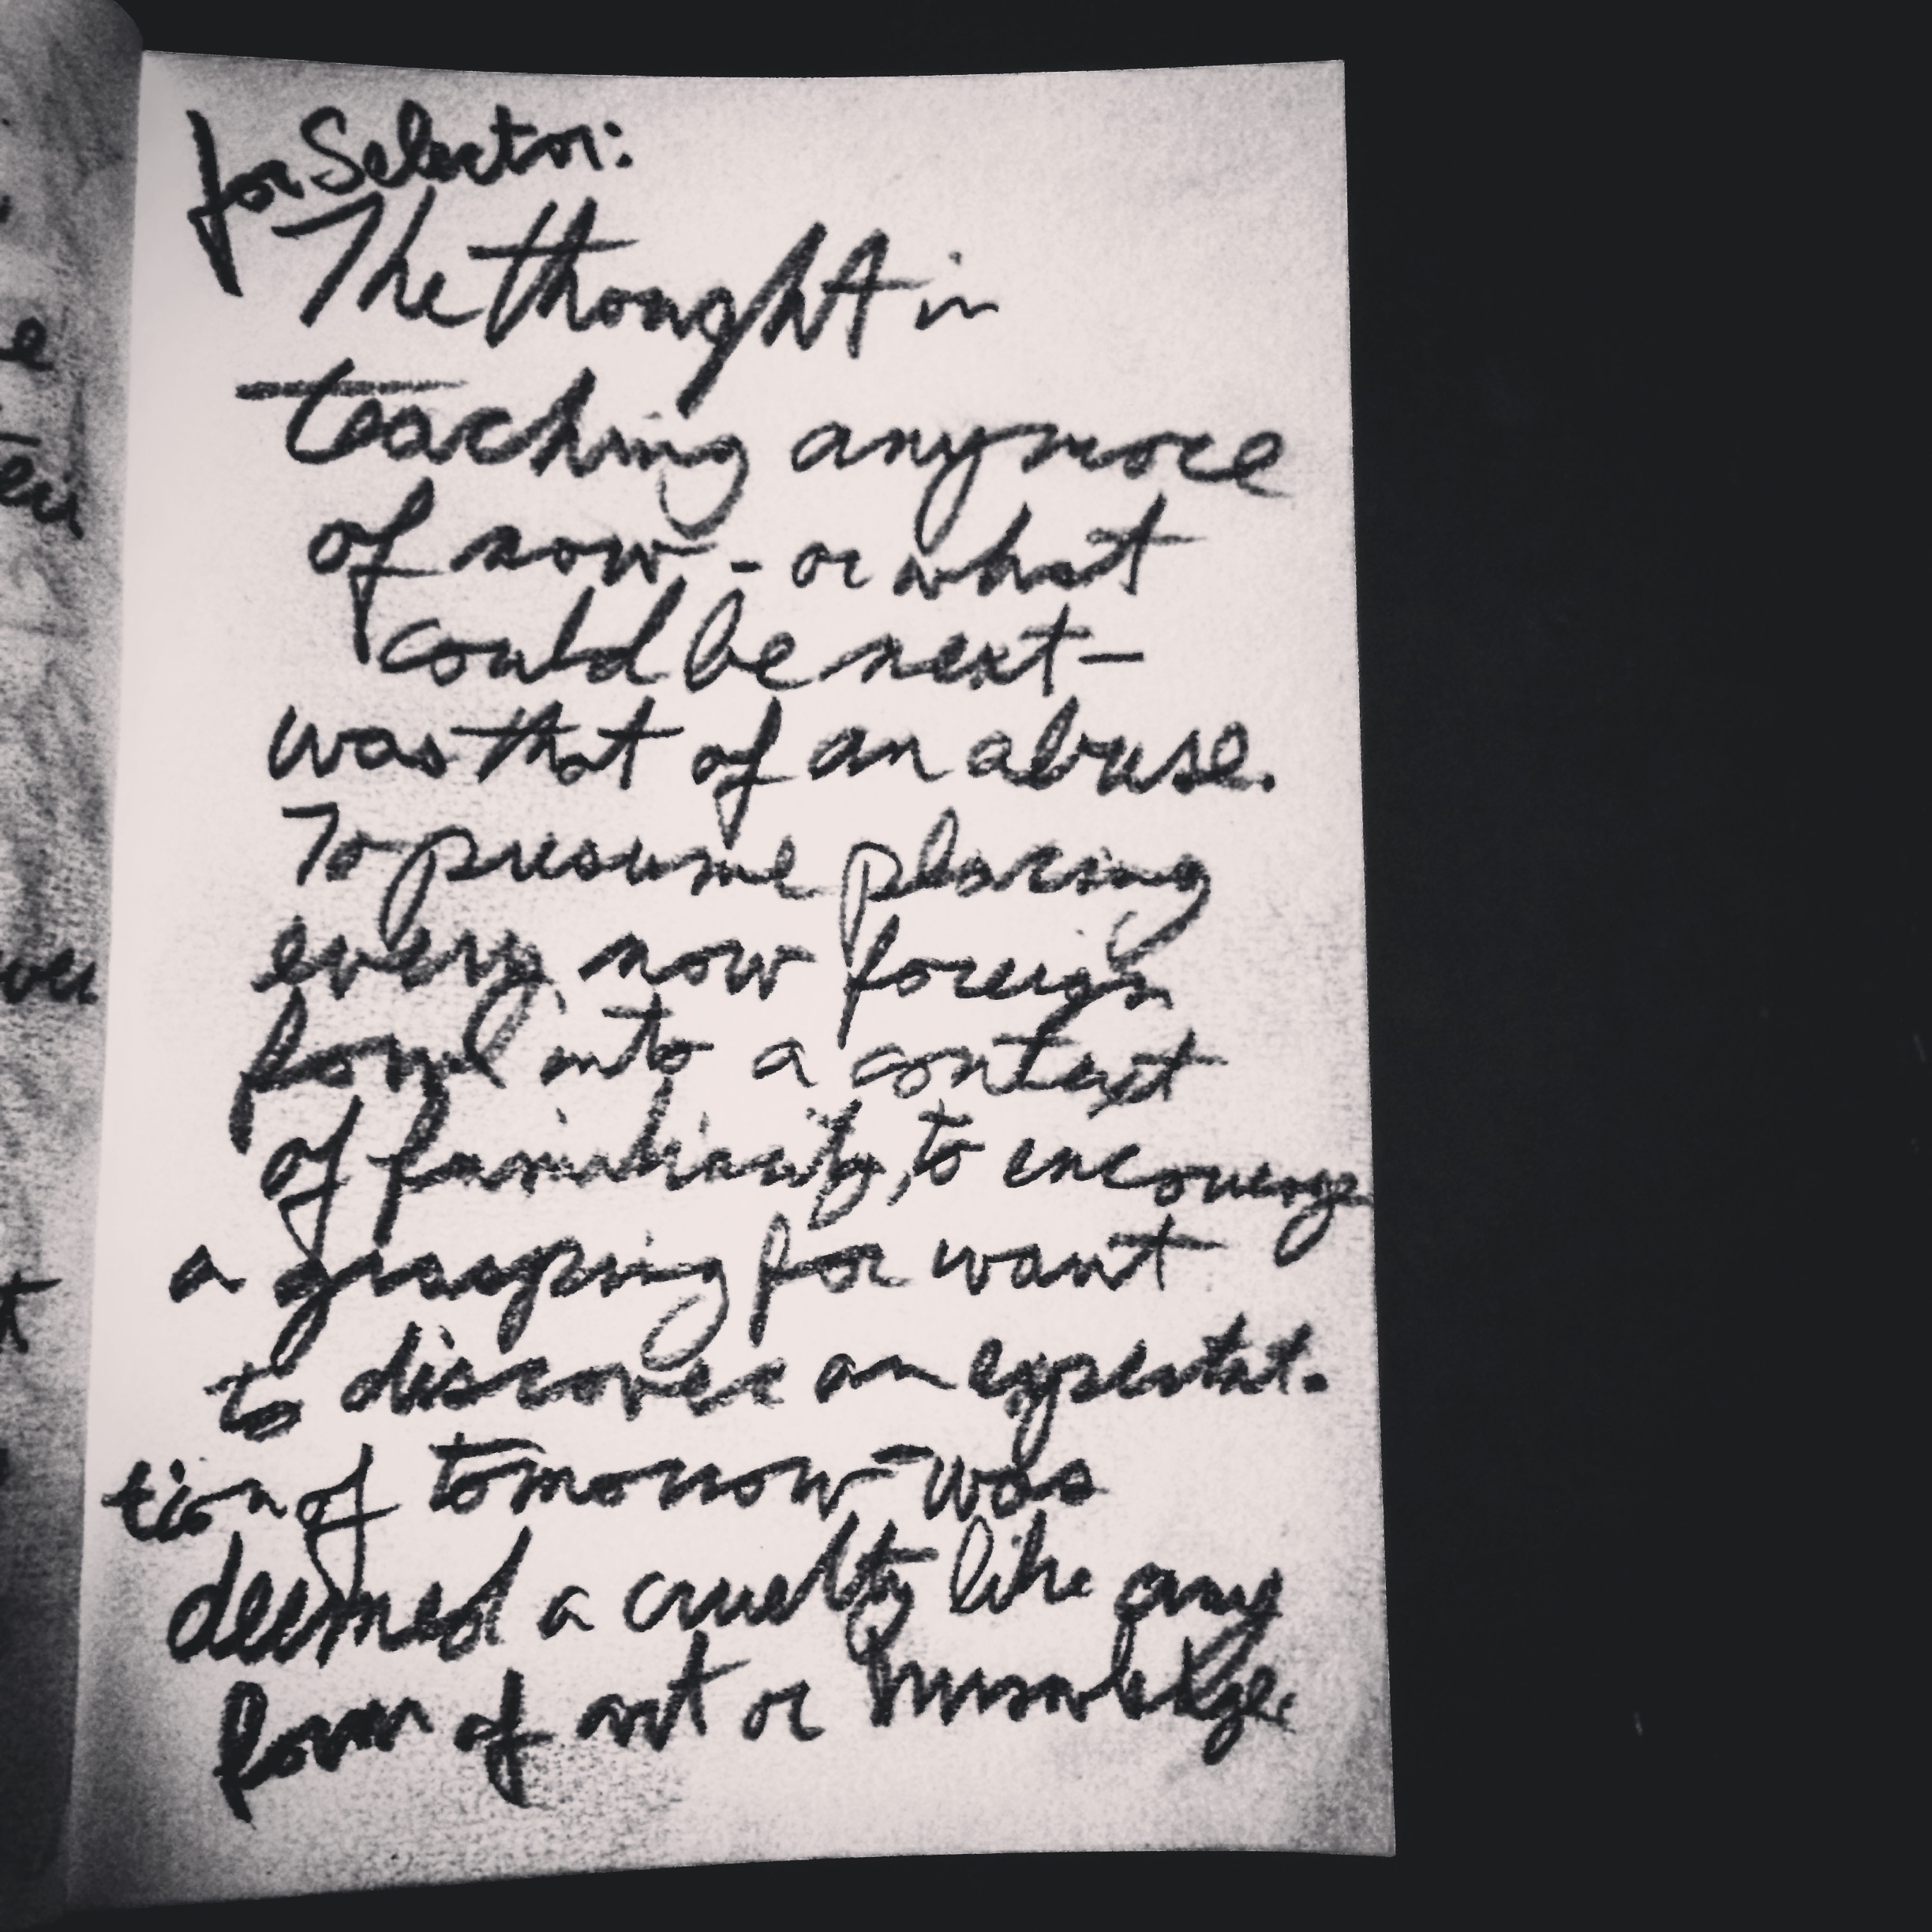 for Selector:
The thought in
teaching anymore
of now - or what
could be next —
was that of an abuse.
To presume placing
every now foreign
into a context
of familiarity, to encourage
a grasping for want
to discover an expectat-
tion of tomorrow - was
deemed a cruelty like any
form of art or knowledge.